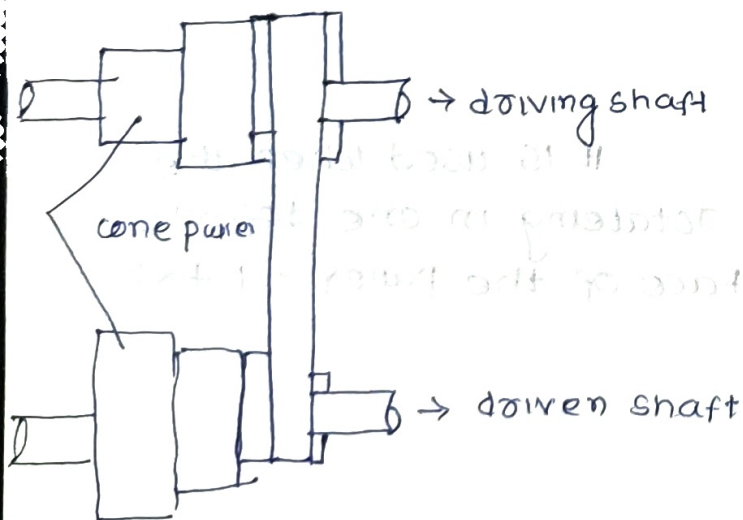 → driving shaft
cone puller
→ driven shaft